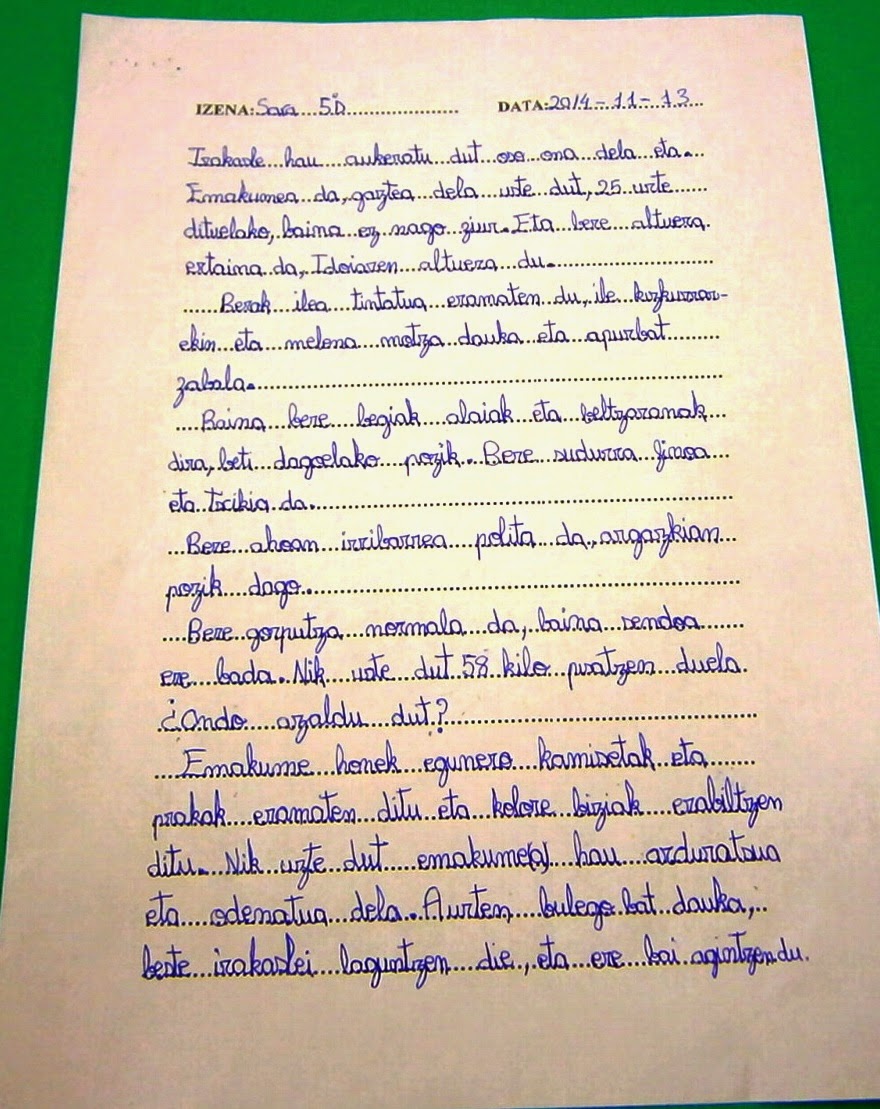 IZENA: Sara 5.D DATA: 2014-11-13
Irakasle hau aukeratu dut oso ona dela eta.
Emakumea da, gaztea dela uste dut, 25 urte
dituelako, baina ez nago ziur. Eta bere altuera
ertaina da, Idoiaren altuera du.
Berak ilea tintatua eramaten du, ile kuzkurrar-
ekin eta melena motza dauka eta apurbat
zabala.
Baina bere begiak alaiak eta beltzaranak
dira, beti dagoelako pozik. Bere sudurra finoa
eta txikia da.
Bere ahoan irribarrea polita da, argazkian
pozik dago.
Bere gorputza normala da, baina sendoa
ere bada. Nik uste dut 58 kilo pisatzen duela.
¿Ondo azaldu dut?
Emakume honek egunero kamisetak eta
prakak eramaten ditu eta kolore biziak erabiltzen
ditu. Nik uzte dut emakume(a) hau arduratsua
eta odenatua dela. Aurten bulego bat dauka,
beste irakaslei laguntzen die, eta ere bai agintzen du.